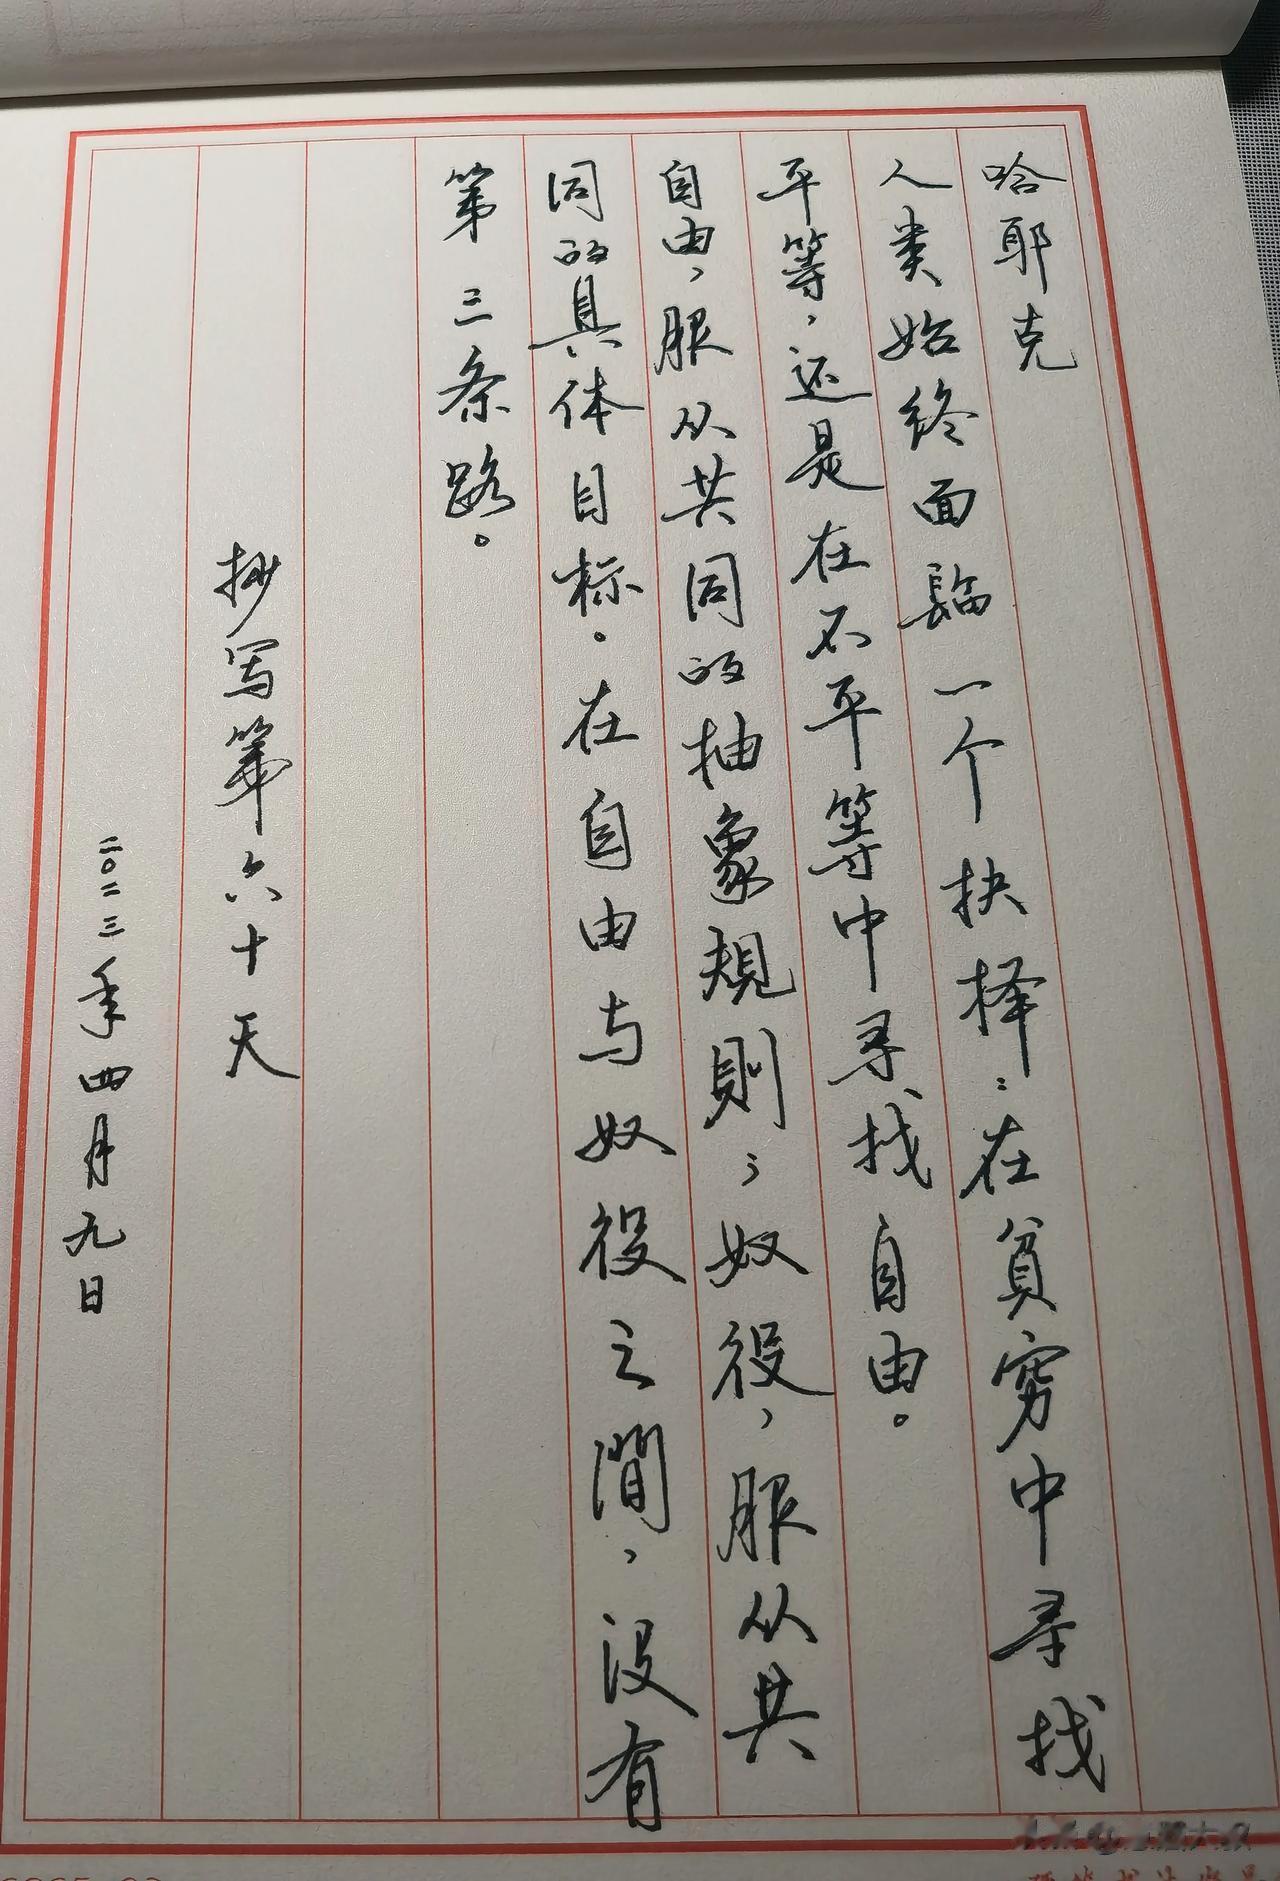 哈耶克
人类始终面臨一个抉择：在貧穷中寻找
平等，还是在不平等中寻找自由。
自由，服从共同的抽象規則；奴役，服从共
同的具体目标。在自由与奴役之間，没有
第三条路。
抄写第六十天
二〇二三年四月九日